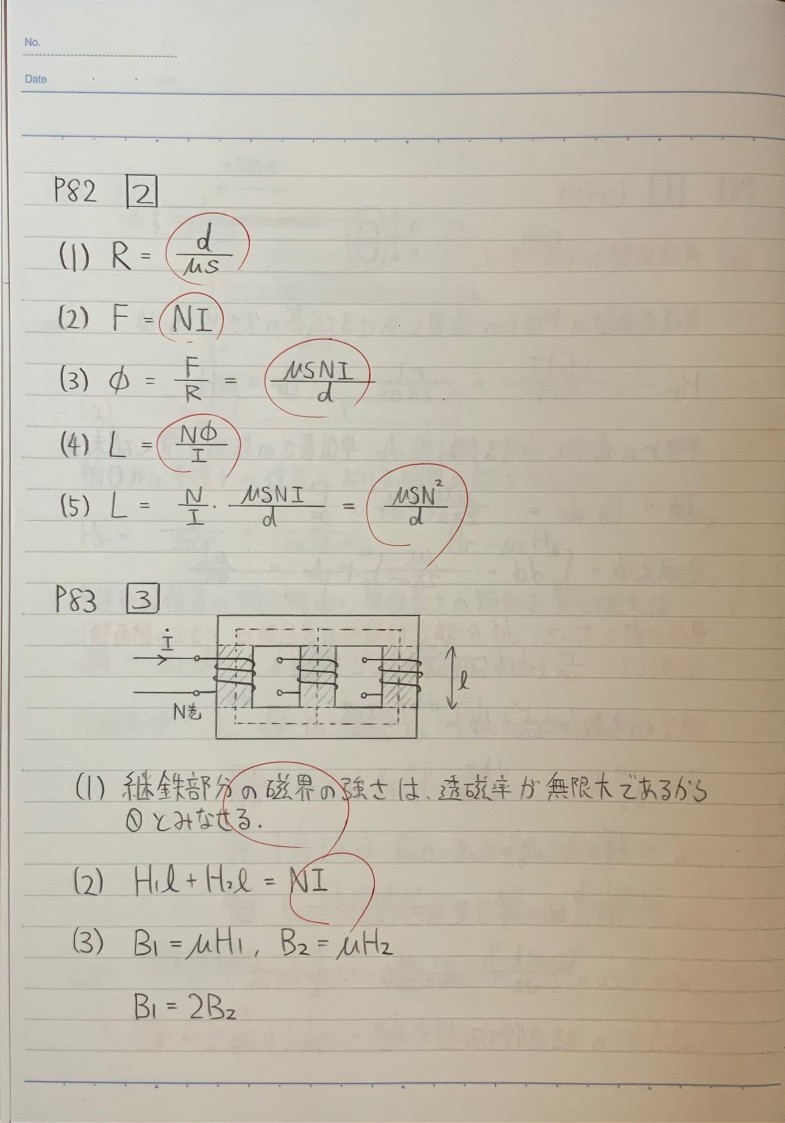 No.
Date
P82 [2]
(1) R = d/μS
(2) F = NI
(3) φ = F/R = μSNI/d
(4) L = Nφ/I
(5) L = N/I · μSNI/d = μSN²/d
P83 [3]
İ
N巻
l
(1) 継鉄部分の磁界の強さは、透磁率が無限大であるから
0とみなせる.
(2) H₁l + H₂l = NI
(3) B₁ = μH₁, B₂ = μH₂
B₁ = 2B₂